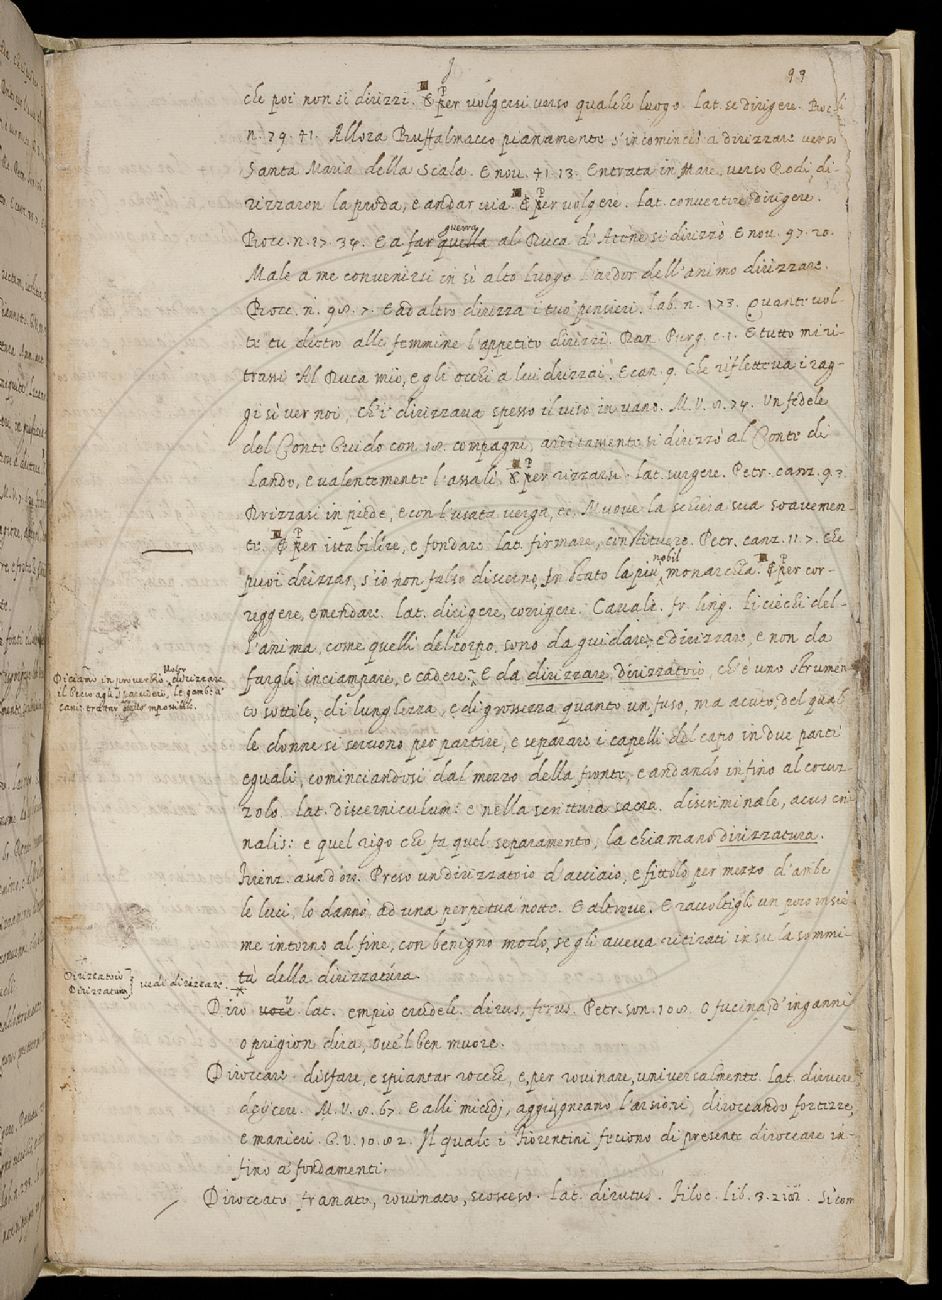 93
che poi non si dirizzi. E per volgersi verso qualche luogo. Lat. se dirigere. Bocc.
n. 79. 41. Allora Buffalmacco pianamente s'incominciò a dirizzare verso
Santa Maria della Scala. E nov. 41. 13. Entrata in Mare, verso Rodi, di-
rizzaron la proda, e andar via. E per volgere. lat. convertire, dirigere.
Bocc. n. 17. 34. E a far guerra quella al Duca d'Atene si dirizzò. E nov. 97. 20.
Male a me convenirsi in sì alto luogo l'ardor dell'animo dirizzare.
Bocc. n. 98. 7. E ad altro dirizza i tuo' pensieri. lab. n. 173. Quante vol-
te tu dietro alle femmine l'appetito dirizzi. Dan. Purg. c. 1. E tutto mi ri-
trassi Al Duca mio, e gli occhi a lui drizzai. E can. 9. Che rifletteva i rag-
gi sì ver noi, Ch'i' dirizzava spesso il viso in vano. M. V. 8. 74. Un fedele
del Conte Guido con 18. compagni, arditamente si dirizzò al Conte di
Lando, e valentemente l'assalì. E per rizzarsi. lat. surgere. Petr. canz. 9. 3.
Drizzasi in piede, e con l'usata verga, ec. Muove la schiera sua soavemen-
te. E per istabilire, e fondare. lat. firmare, constituere. Petr. canz. 11. 7. Che
puoi drizzar, s'io non falso discerno, In stato la più nobil monarchia. E per cor-
reggere, emendare. lat. dirigere, corrigere. Cavalc. fr. ling. Li ciechi del-
l'anima, come quelli del corpo, sono da guidare, e dirizzare, e non da
fargli inciampare, e cadere. E da dirizzare, dirizzatoio, ch'è uno strumen-
Diciamo in proverbio. Voler dirizzare
il becco agli sparvieri, le gambe a'
cani: trattar dello 'mpossibile.
to sottile, di lunghezza, e di grossezza quanto un fuso, ma acuto, del qual
le donne si servono per partire, e separare i capelli del capo in due parti
eguali, cominciandosi dal mezzo della fronte, e andando infino al cocuz-
zolo. lat. discerniculum: e nella scrittura sacra. discriminale, acus cri-
nalis: e quel rigo che fa quel separamento, la chiamano dirizzatura.
Firenz. asin d'or. Preso un dirizzatoio d'acciaio, e fittolo per mezzo d'ambe
le luci, lo dannò ad una perpetua notte. E altrove. E raccoltigli un poco insie-
me intorno al fine, con benigno modo, se gli aveva ritirati in su la sommi-
tà della dirizzatura.
Dirizzatoio
Dirizzatura} vedi dirizzare.
Diro voce lat. empio crudele. dirus, ferus. Petr. son. 108. O fucina, d'inganni
o prigion dira, ove 'l ben muore.
Diroccare. disfare, e spiantar rocche, e, per rovinare, universalmente. lat. diruere
dejicere. M. V. 8. 67. E alli micidj, aggiugneano l'arsioni, diroccando fortezze,
e manieri. G. V. 10. 82. Il quale i Fiorentini feciono di presente diroccare in-
fino a' fondamenti.
Diroccato. franato, rovinato, scosceso. lat. dirutus. Filoc. lib. 3. Sì com